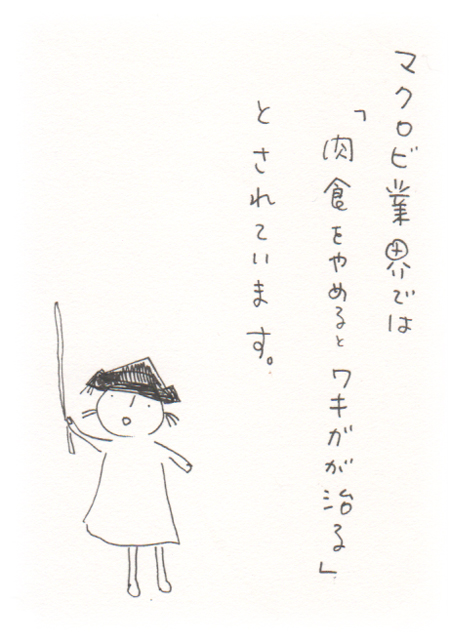 マクロビ業界では
「肉食をやめるとワキガが治る」
とされています。